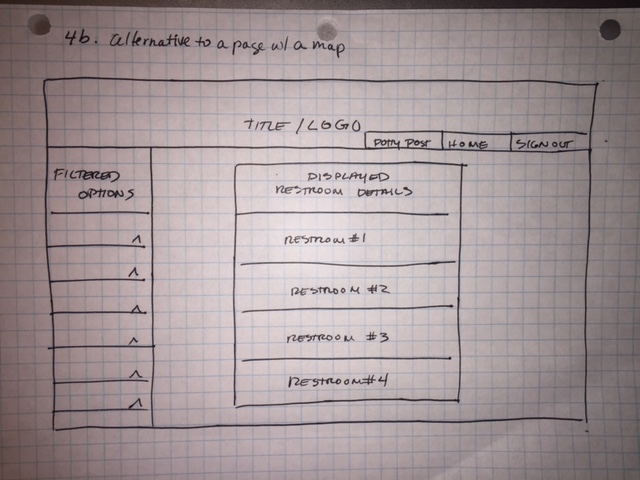 4b. alternative to a page w/ a map
TITLE / LOGO
POTTY POST HOME SIGN OUT
FILTERED
OPTIONS
DISPLAYED
RESTROOM DETAILS
RESTROOM #1
RESTROOM #2
RESTROOM #3
RESTROOM #4